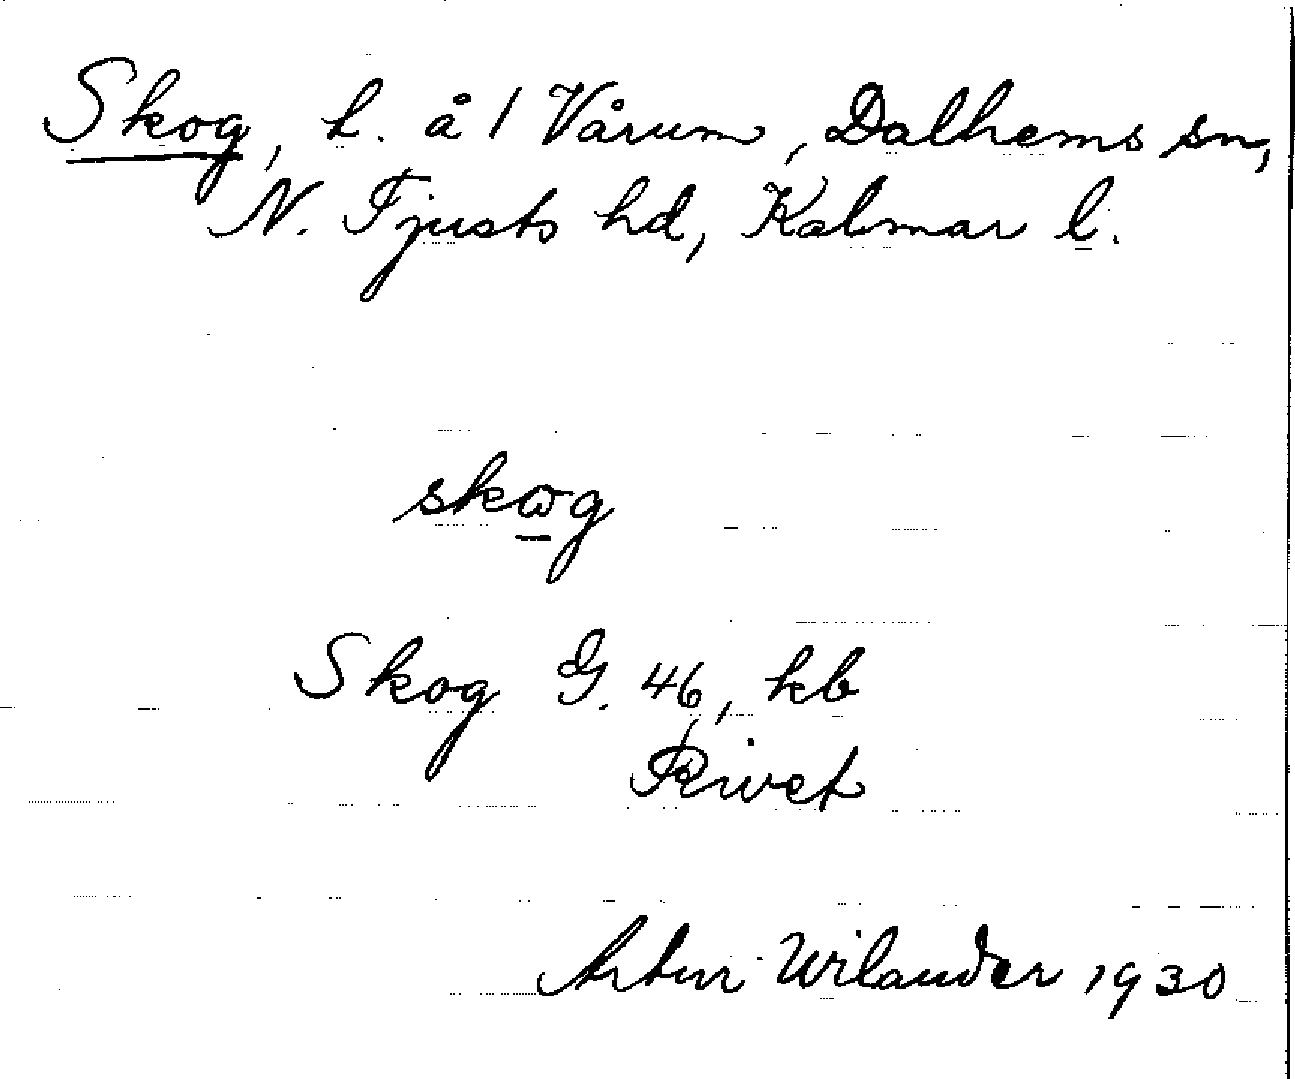 Skog, h. å 1 Vårum, Dalhems sn,
N. Tjusts hd, Kalmar l.
skωg
Skog G. 46, kb
Rivet
Artur Wilander 1930